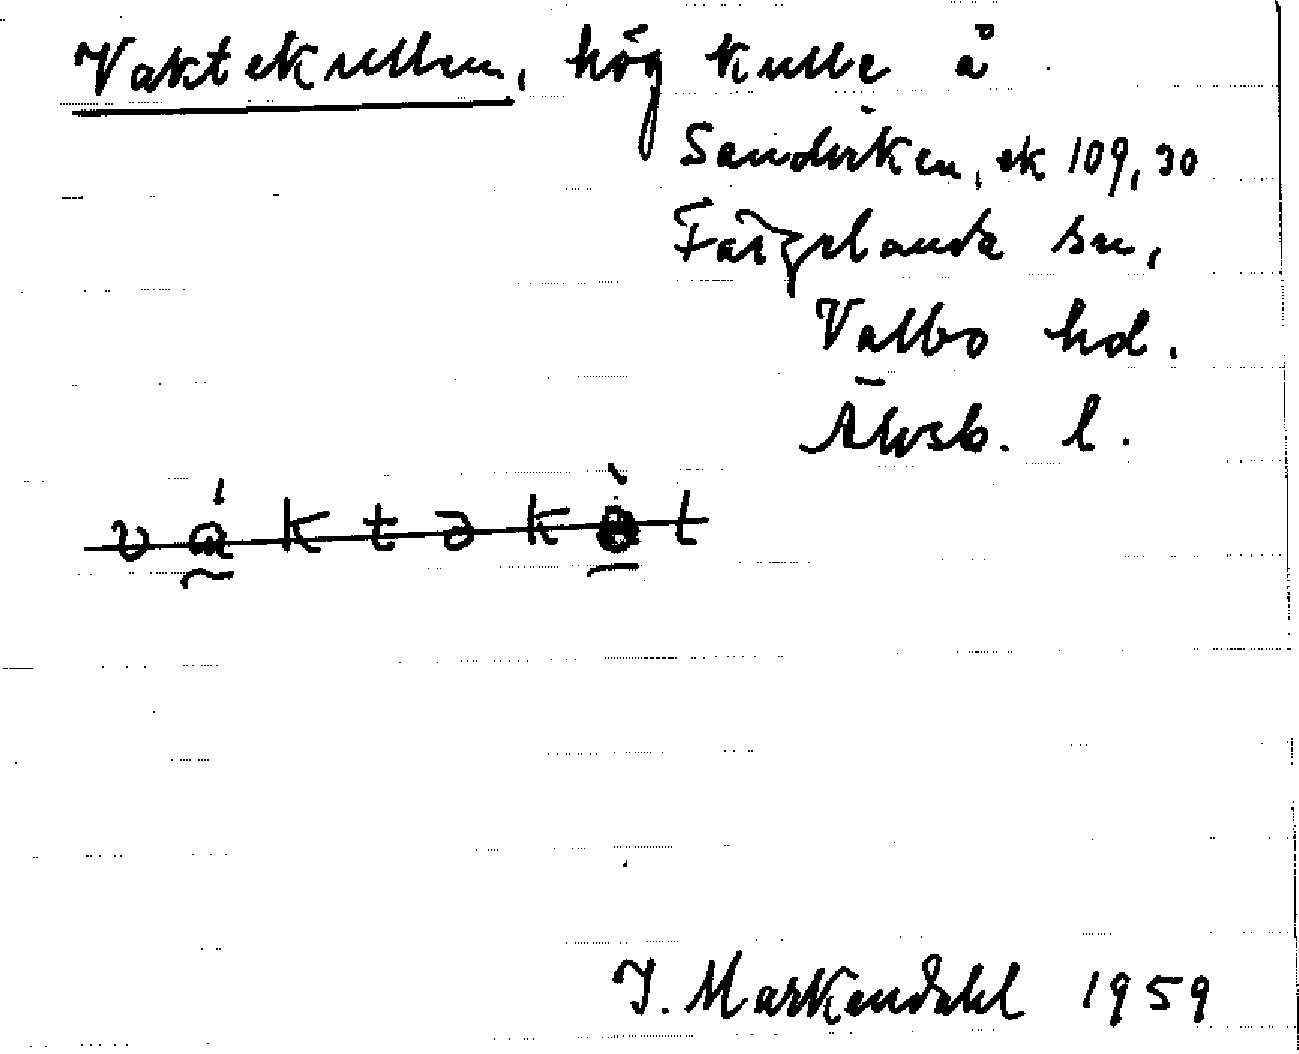 Vaktekullen, hög kulle å
Sandviken, ek 109,30
Färgelanda sn,
Valbo hd.
Älvsb. l.
váktəkòl
I. Markendahl 1959